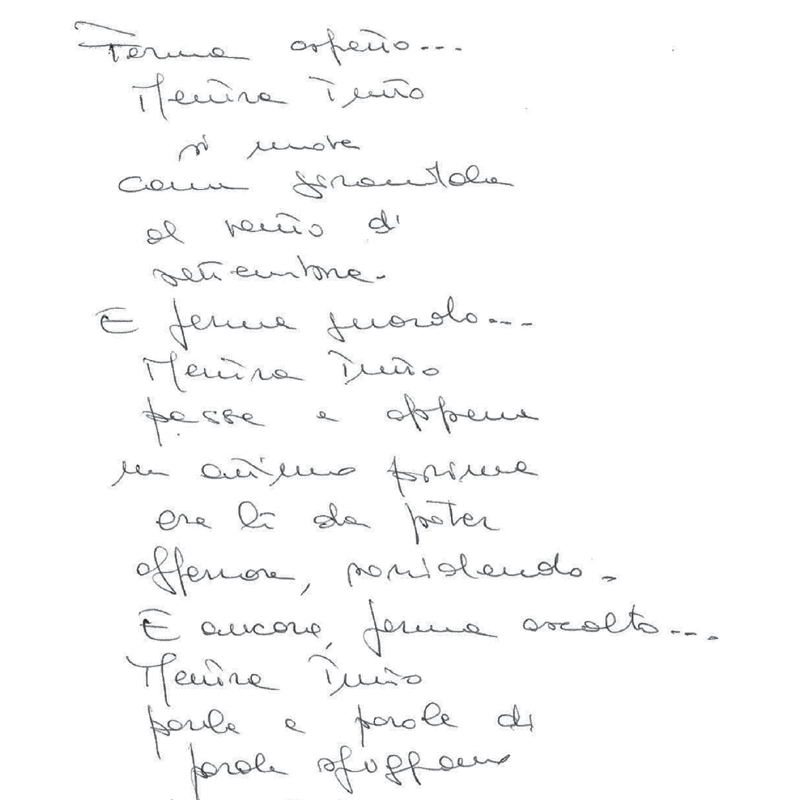 Ferma aspetto...
Mentre Tutto
si muove
come girandola
al vento di
settembre.
E ferma guardo...
Mentre Tutto
passa e appena
un attimo prima
era lì da poter
afferrare, sorridendo.
E ancora, ferma ascolto...
Mentre Tutto
parla e parole di
parole sfuggono